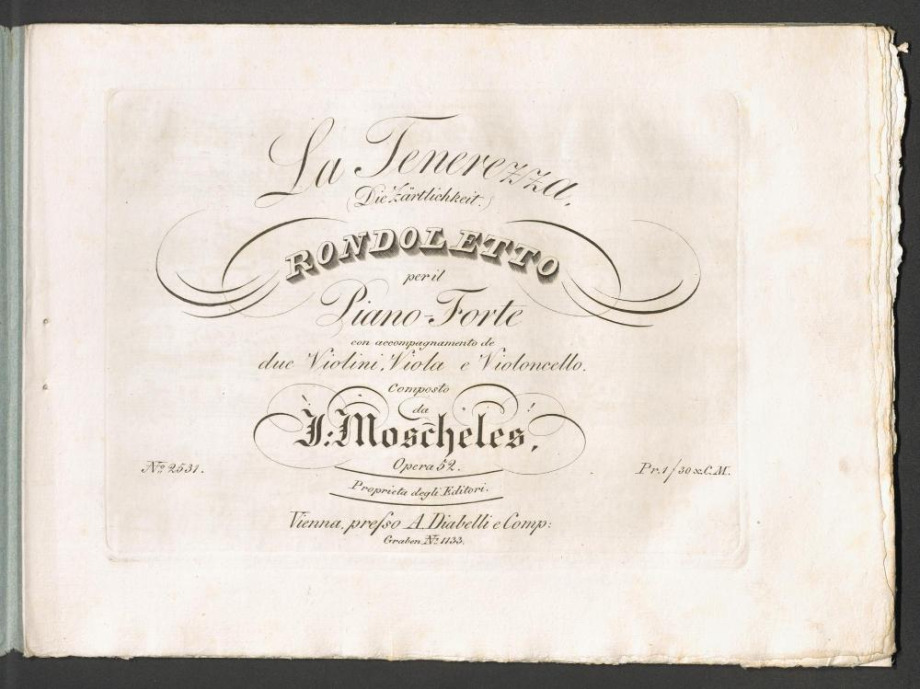 La Tenerezza,
(Die Zärtlichkeit.)
RONDOLETTO
per il
Piano-Forte
con accompagnamento de
due Violini, Viola e Violoncello.
Composto
da
J: Moscheles,
Opera 52.
No. 2531.
Pr. 1 f 30 x. C. M.
Proprieta degli Editori.
Vienna, preſso A. Diabelli e Comp:
Graben No. 1133.